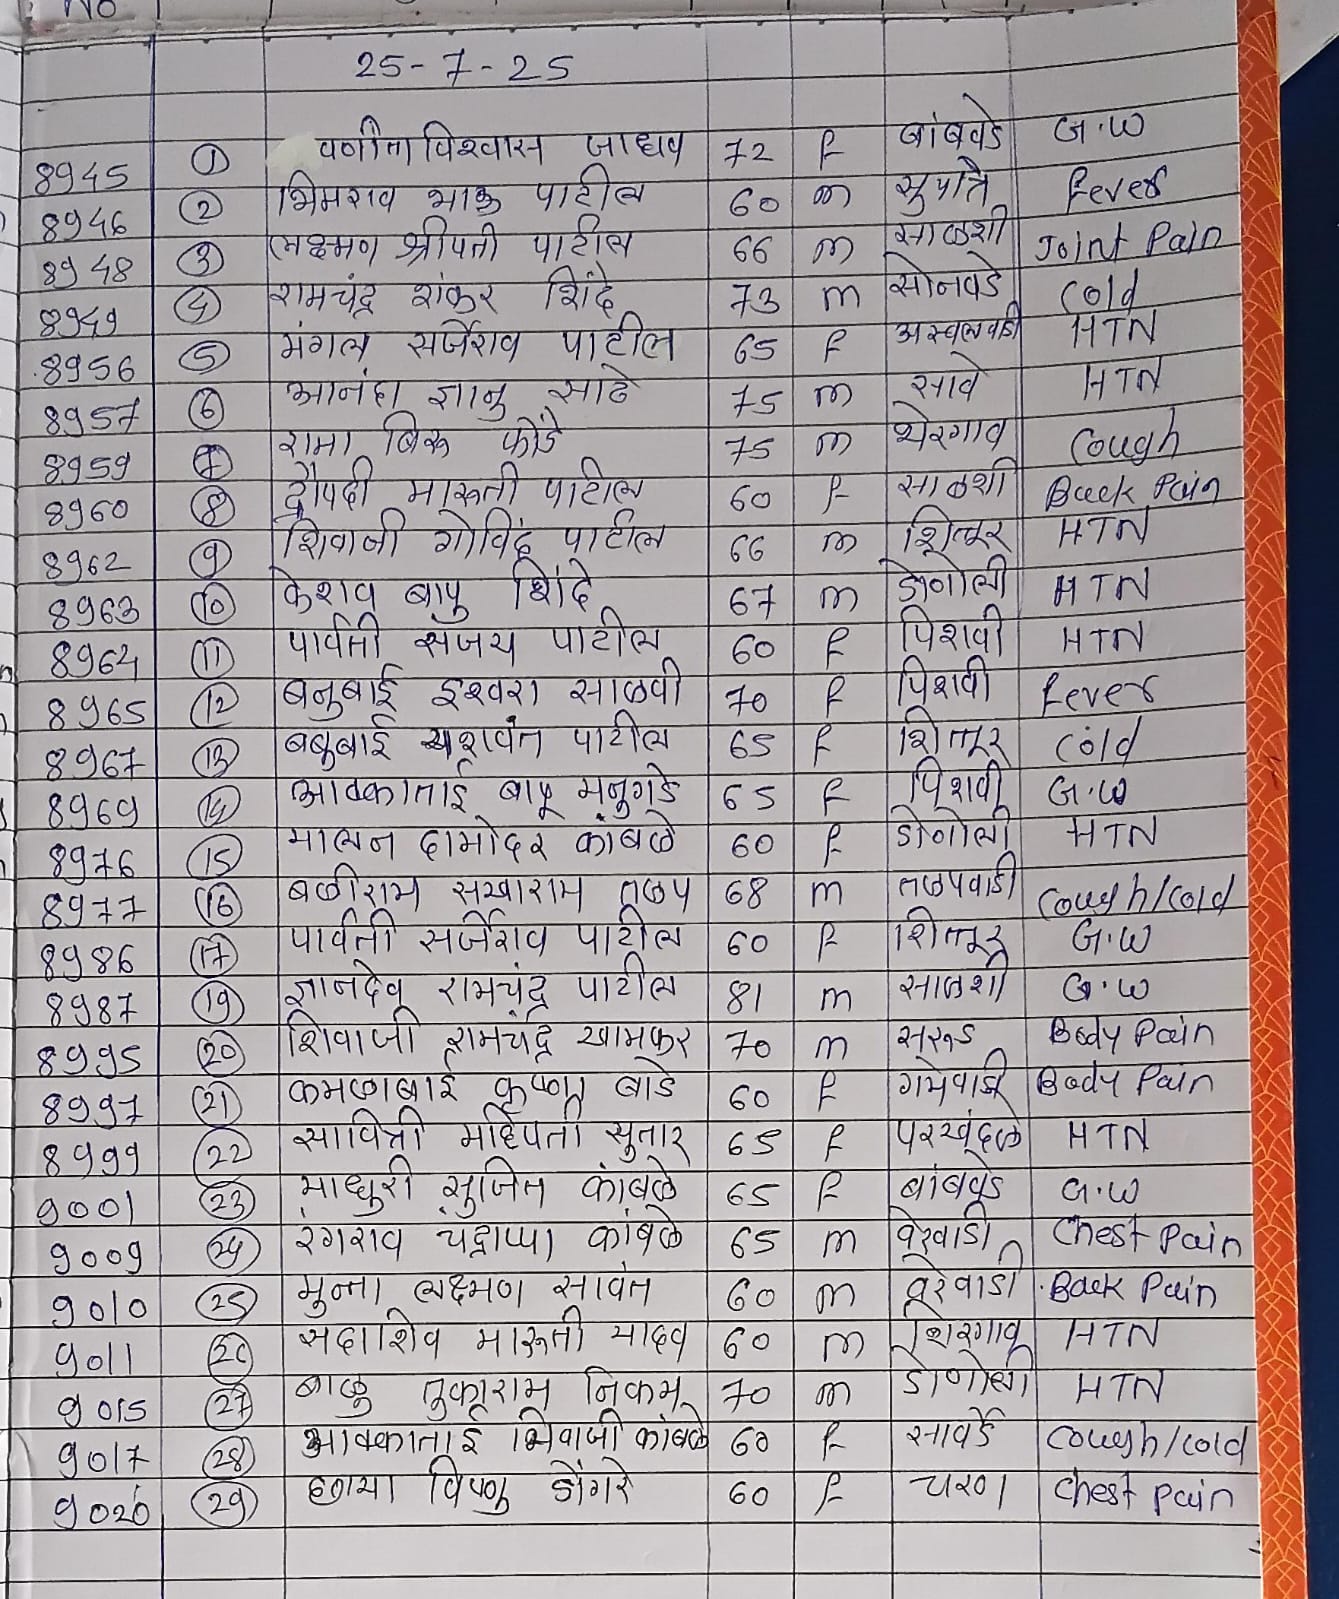 No
25-7-25
8945 1 विश्वास जाधव 72 F बांबवडे G.W
8946 2 भिमराव भाऊ पाटील 60 m सुपात्रे Fever
8948 3 लक्ष्मण श्रीपती पाटील 66 m साळशी Joint Pain
8949 4 रामचंद्र शंकर शिंदे 73 m सोनवडे Cold
8956 5 मंगल सर्जेराव पाटील 65 F अस्वलवाडी HTN
8957 6 आनंदा ज्ञानु साठे 75 m सावे HTN
8959 7 रामा बिरू 75 m थेरगाव Cough
8960 8 द्रौपदी मारूती पाटील 60 F साळशी Back Pain
8962 9 शिवाजी गोविंद पाटील 66 m शित्तूर HTN
8963 10 केशव बापु शिंदे 67 m डोणोली HTN
8964 11 पार्वती संजय पाटील 60 F पिशवी HTN
8965 12 बनुबाई इश्वरा साळवी 70 F पिशवी Fever
8967 13 बबुबाई यशवंत पाटील 65 F शित्तूर cold
8969 14 आक्काताई बापू मनुगडे 65 F पिशवी G.W
8976 15 मालन दामोदर कांबळे 60 F डोणोली HTN
8977 16 बळीराम सखाराम तळप 68 m तळपवाडी Cough/cold
8986 17 पार्वती सर्जेराव पाटील 60 F शित्तूर G.W
8987 19 ज्ञानदेव रामचंद्र पाटील 81 m साळशी G.W
8995 20 शिवाजी रामचंद्र खामकर 70 m सरूड Body Pain
8997 21 कमळाबाई कृष्णा बाडे 60 F गमेवाडी Body Pain
8999 22 सावित्री महिपती सुतार 65 F परखंदळे HTN
9001 23 माधुरी सुजित कांबळे 65 F बांबवडे G.W
9009 24 रंगराव चंद्राप्पा कांबळे 65 m वेरेवाडी Chest Pain
9010 25 मुन्ना लक्ष्मण सावंत 60 m वेरेवाडी Back Pain
9011 26 सदाशिव मारूती यादव 60 m शिरगाव HTN
9015 27 बाळु तुकाराम निकम 70 m डोणोली HTN
9017 28 आक्काताई शिवाजी कांबळे 60 F सावर्डे Cough/cold
9020 29 छाया विष्णु डोंगरे 60 F चरण Chest Pain